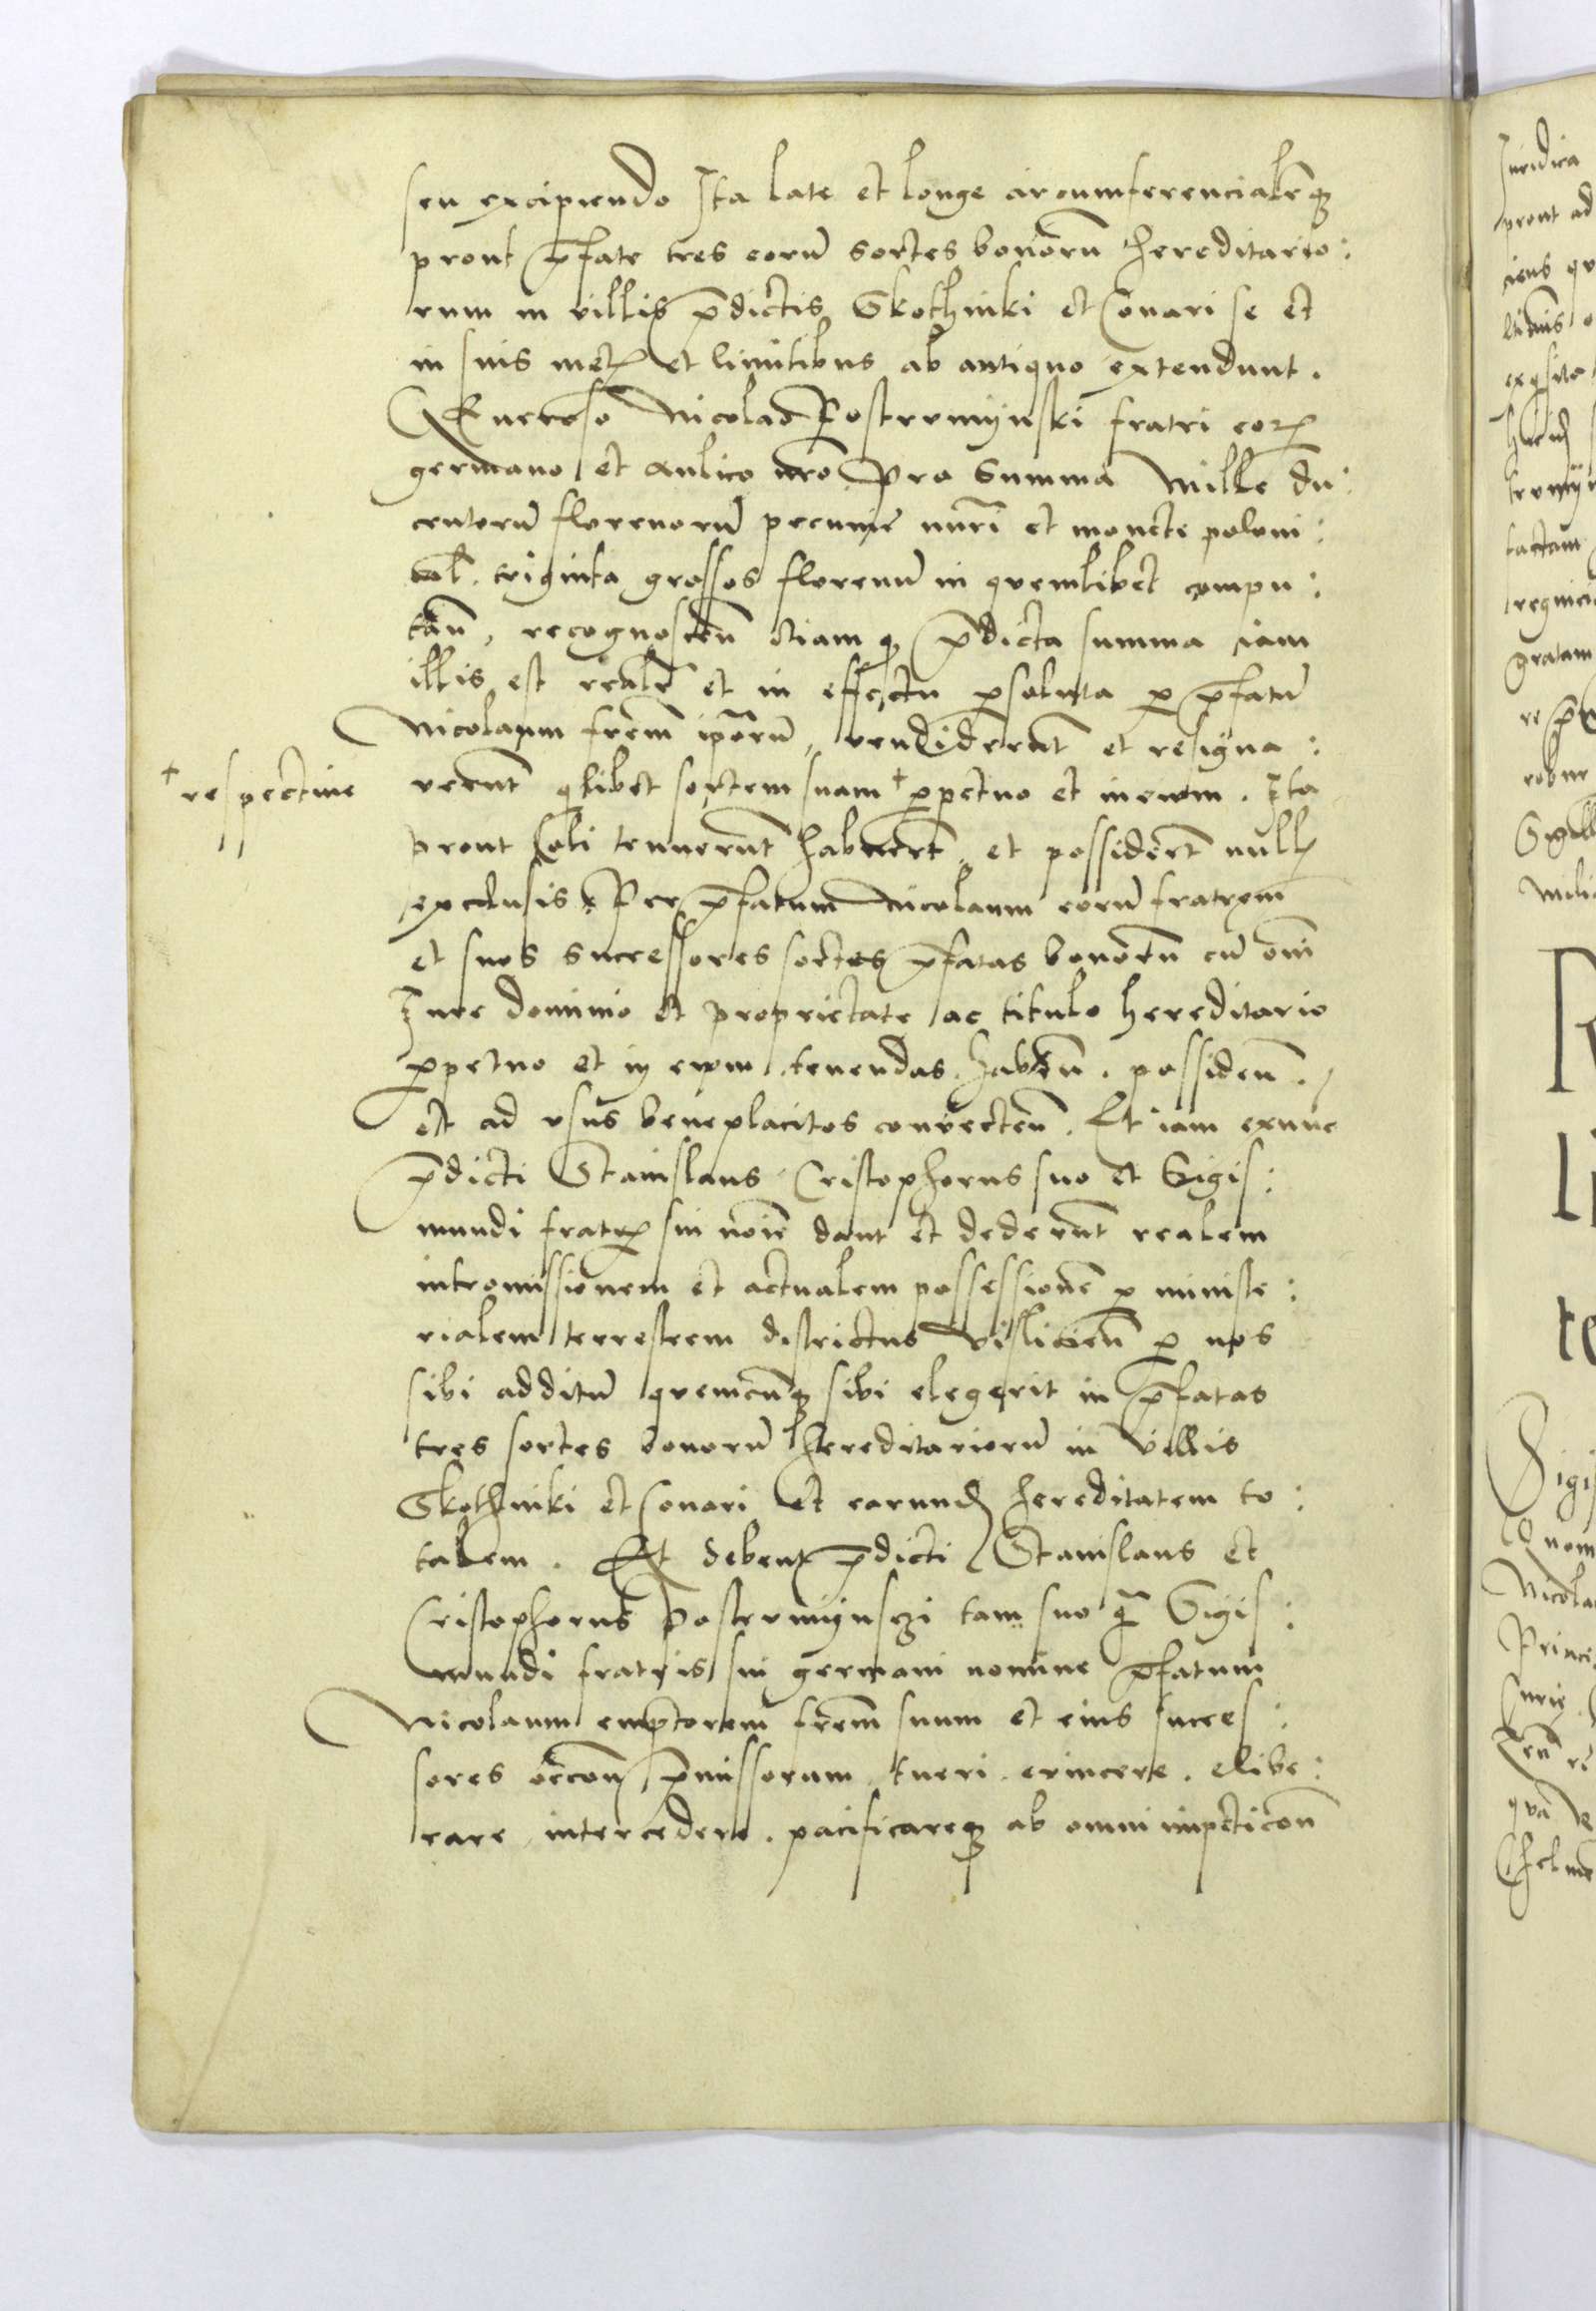 seu excipiendo Ita late et longe circumferencialr̃qȝ
prout p̃fate tres eorũ sortes bonorũ hereditario:
rum in villis p̃dictis Skothniki et Conari se et
in suis metꝭ et limitibus ab antiquo extendunt.
Generoso Nicolao Postrumÿnski fratri eorꝝ
germano et Aulico nrõ Pro Summa Mille du:
centorũ florenorũ pecunie nũri et monete poloni:
cal̃. triginta grossos florenũ in quemlibet compu:
tañ, recognosceñ etiam qȝ p̃dicta summa iam
illis est realr̃ et in effectu ꝑsoluta ꝑ p̃fatũ
Nicolaum frẽm ip̃orũ, vendiderunt̃ et resigna:
verunt̃ qlibet sortem suam + ꝑpetuo et in ewm. Ita
+ respective
prout soli tenuerunt̃ habuerũt, et possiderũt nullꝭ
exclusis Per p̃fatum Nicolaum eorũ fratrem
et suos successores sortes p̃fatas bonorũ cũ om̃i
Iure dominio et proprietate ac titulo hereditario
ꝑpetuo et in ewm tenendas. habẽñ. possideñ.
et ad usus beneplacitos converteñ. Et iam exnunc
p̃dicti Stanislaus Cristophorus suo et Sigis:
mundi fratrꝭ sui noĩe dant et dederunt̃ realem
intromissionem et actualem possessionẽ ꝑ ministe:
rialem terrestrem districtus Visliciẽñ ꝑ nos
sibi additũ quemcũqȝ sibi elegerit in p̃fatas
tres sortes bonorũ hereditariorũ in villis
Skothniki et Conari et earundẽ hereditatem to:
talem. Et debent p̃dicti Stanislaus et
Cristophorus Postrumÿnsczi tam suo q̃ Sigis:
mundi fratris sui germani nomine p̃fatum
Nicolaum emptorem frẽm suum et eius succes:
sores occoñe p̃missorum tueri. evincere. elibe:
rare. intercedere. pacificareqȝ ab omni impeticoñ